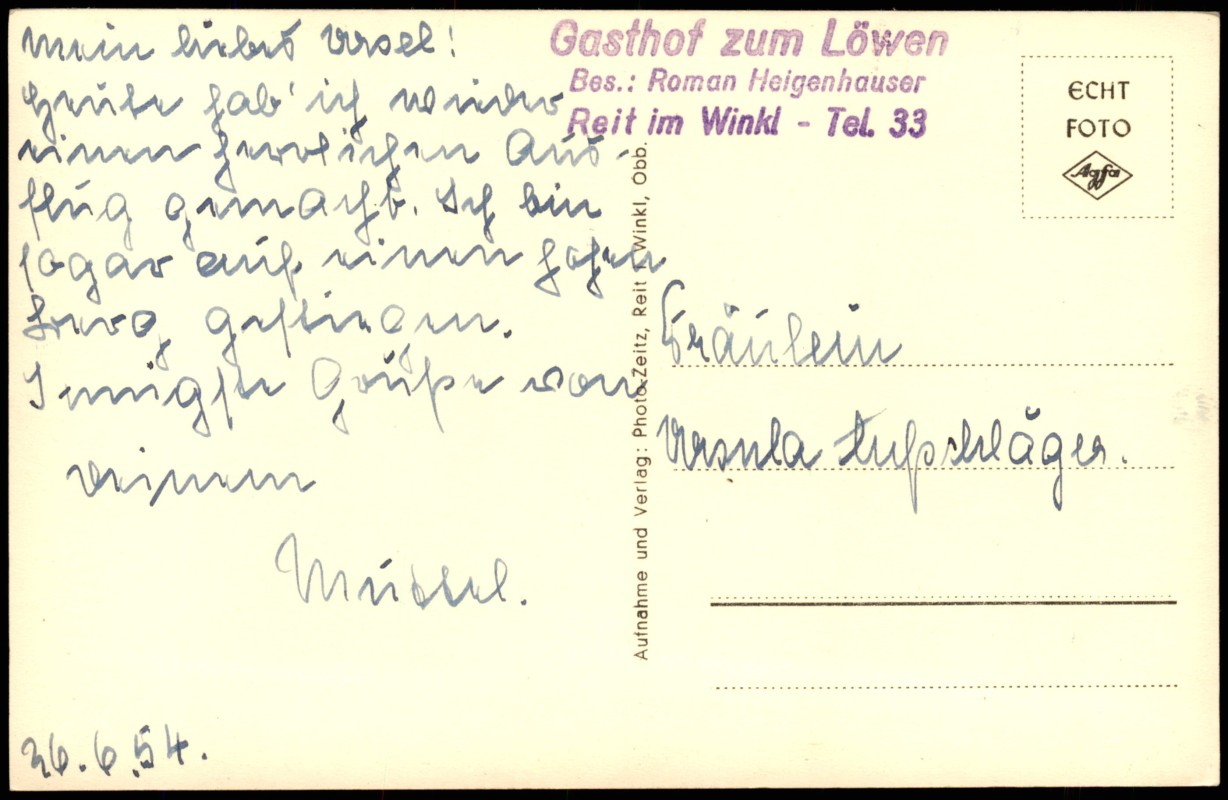 Mein liebes Ursel!
Heute hab' ich wieder
einen herrlichen Aus-
flug gemacht. Ich bin
sogar auf einen hohen
Berg gestiegen.
Innigste Grüße von
deinem
26.6.54.
Gasthof zum Löwen
Bes.: Roman Heigenhauser
Reit im Winkl - Tel. 33
ECHT
FOTO
Agfa
Aufnahme und Verlag: Photo-Zeitz, Reit i. Winkl, Obb.
Fräulein
Ursula